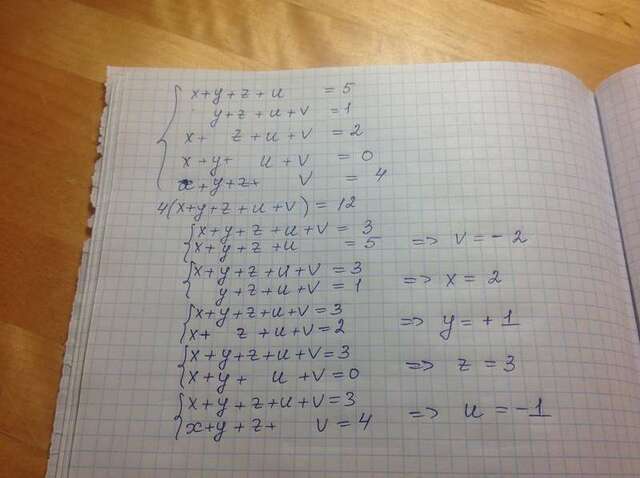 x+y+z+u = 5
y+z+u+v = 1
x+ z+u+v = 2
x+y+ u+v = 0
x+y+z+ v = 4
4(x+y+z+u+v) = 12
x+y+z+u+v = 3
x+y+z+u = 5 => v = -2
x+y+z+u+v = 3
y+z+u+v = 1 => x = 2
x+y+z+u+v = 3
x+ z+u+v = 2 => y = +1
x+y+z+u+v = 3
x+y+ u+v = 0 => z = 3
x+y+z+u+v = 3
x+y+z+ v = 4 => u = -1